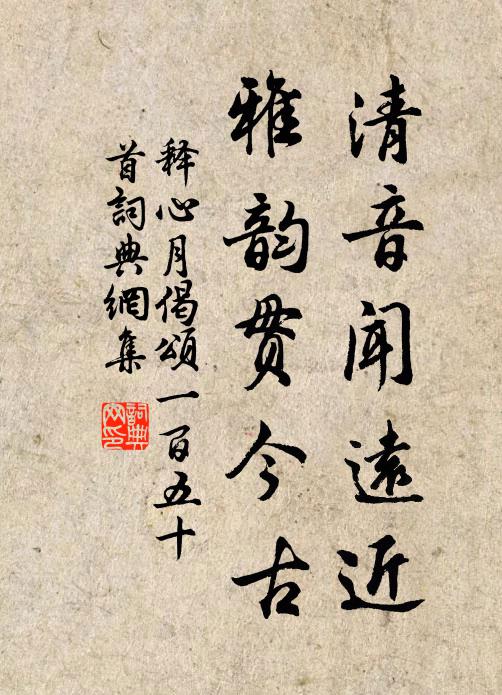 清音闻遠近
雅韵贯今古
释心月偈頌一百五十
首詞典網集
詞典
网印